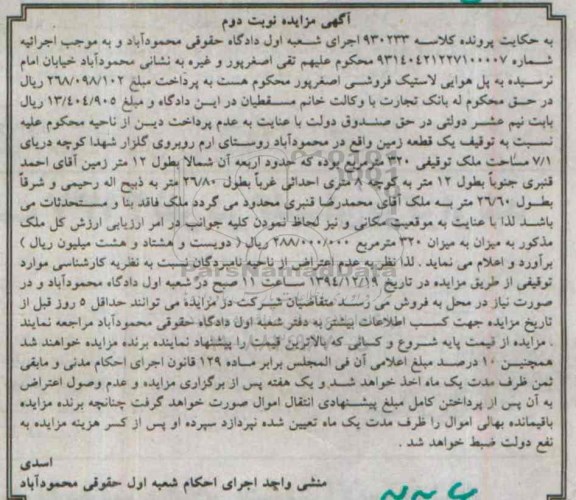 آگهی مزایده نوبت دوم
به حکایت پرونده کلاسه ۹۳۰۲۳۳ اجرای شعبه اول دادگاه حقوقی محمودآباد و به موجب اجرائیه
شماره ۹۳۱۴۰۴۲۱۲۲۷۱۰۰۰۰۷ محکوم علیهم تقی اصغرپور و غیره به نشانی محمودآباد خیابان امام
نرسیده به پل هوایی لاستیک فروشی اصغرپور محکوم هست به پرداخت مبلغ ۲۶۸/۰۹۸/۱۰۲ ریال
در حق محکوم له بانک تجارت با وکالت خانم مسقطیان در این دادگاه و مبلغ ۱۳/۴۰۴/۹۰۵ ریال
بابت نیم عشر دولتی در حق صندوق دولت با عنایت به عدم پرداخت دین از ناحیه محکوم علیه
نسبت به توقیف یک قطعه زمین واقع در محمودآباد روستای ارم روبروی گلزار شهدا کوچه دریای
۷/۱ مساحت ملک توقیفی ۳۲۰ متر بوده که حدود اربعه آن شمالا بطول ۱۲ متر زمین آقای احمد
قنبری جنوبا بطول ۱۲ متر به کوچه ۸ متری احداثی غربا بطول ۲۶/۸۰ متر به ذبیح اله رحیمی و شرقا
بطول ۲۶/۶۰ متر به ملک آقای محمدرضا قنبری محدود می گردد ملک فاقد بنا و مستحدثات می
باشد لذا با عنایت به موقعیت مکانی و نیز لحاظ نمودن کلیه جوانب در امر ارزیابی ارزش کل ملک
مذکور به میزان به میزان ۳۲۰ مترمربع ۲۸۸/۰۰۰/۰۰۰ ریال ( دویست و هشتاد و هشت میلیون ریال )
برآورد و اعلام می نماید . لذا نظر به عدم اعتراض از ناحیه نامبردگان نسبت به نظریه کارشناسی موارد
توقیفی از طریق مزایده در تاریخ ۱۳۹۴/۱۲/۱۹ ساعت ۱۱ صبح در شعبه اول دادگاه محمودآباد و در
صورت نیاز در محل به فروش می رسد متقاضیان شرکت در مزایده می توانند حداقل ۵ روز قبل از
تاریخ مزایده جهت کسب اطلاعات بیشتر به دفتر شعبه اول دادگاه حقوقی محمودآباد مراجعه نمایند
. مزایده از قیمت پایه شروع و کسانی که بالاترین قیمت را پیشنهاد نماینده برنده مزایده خواهند شد
همچنین ۱۰ درصد مبلغ اعلامی آن فی المجلس برابر ماده ۱۲۹ قانون اجرای احکام مدنی و مابقی
ثمن ظرف مدت یک ماه اخذ خواهد شد و یک هفته پس از برگزاری مزایده و عدم وصول اعتراض
به آن پس از پرداختن کامل مبلغ پیشنهادی انتقال اموال صورت خواهد گرفت چنانچه برنده مزایده
باقیمانده بهائی اموال را ظرف مدت یک ماه تعیین شده نپردازد سپرده او پس از کسر هزینه مزایده به
نفع دولت ضبط خواهد شد .
اسدی
منشی واحد اجرای احکام شعبه اول حقوقی محمودآباد